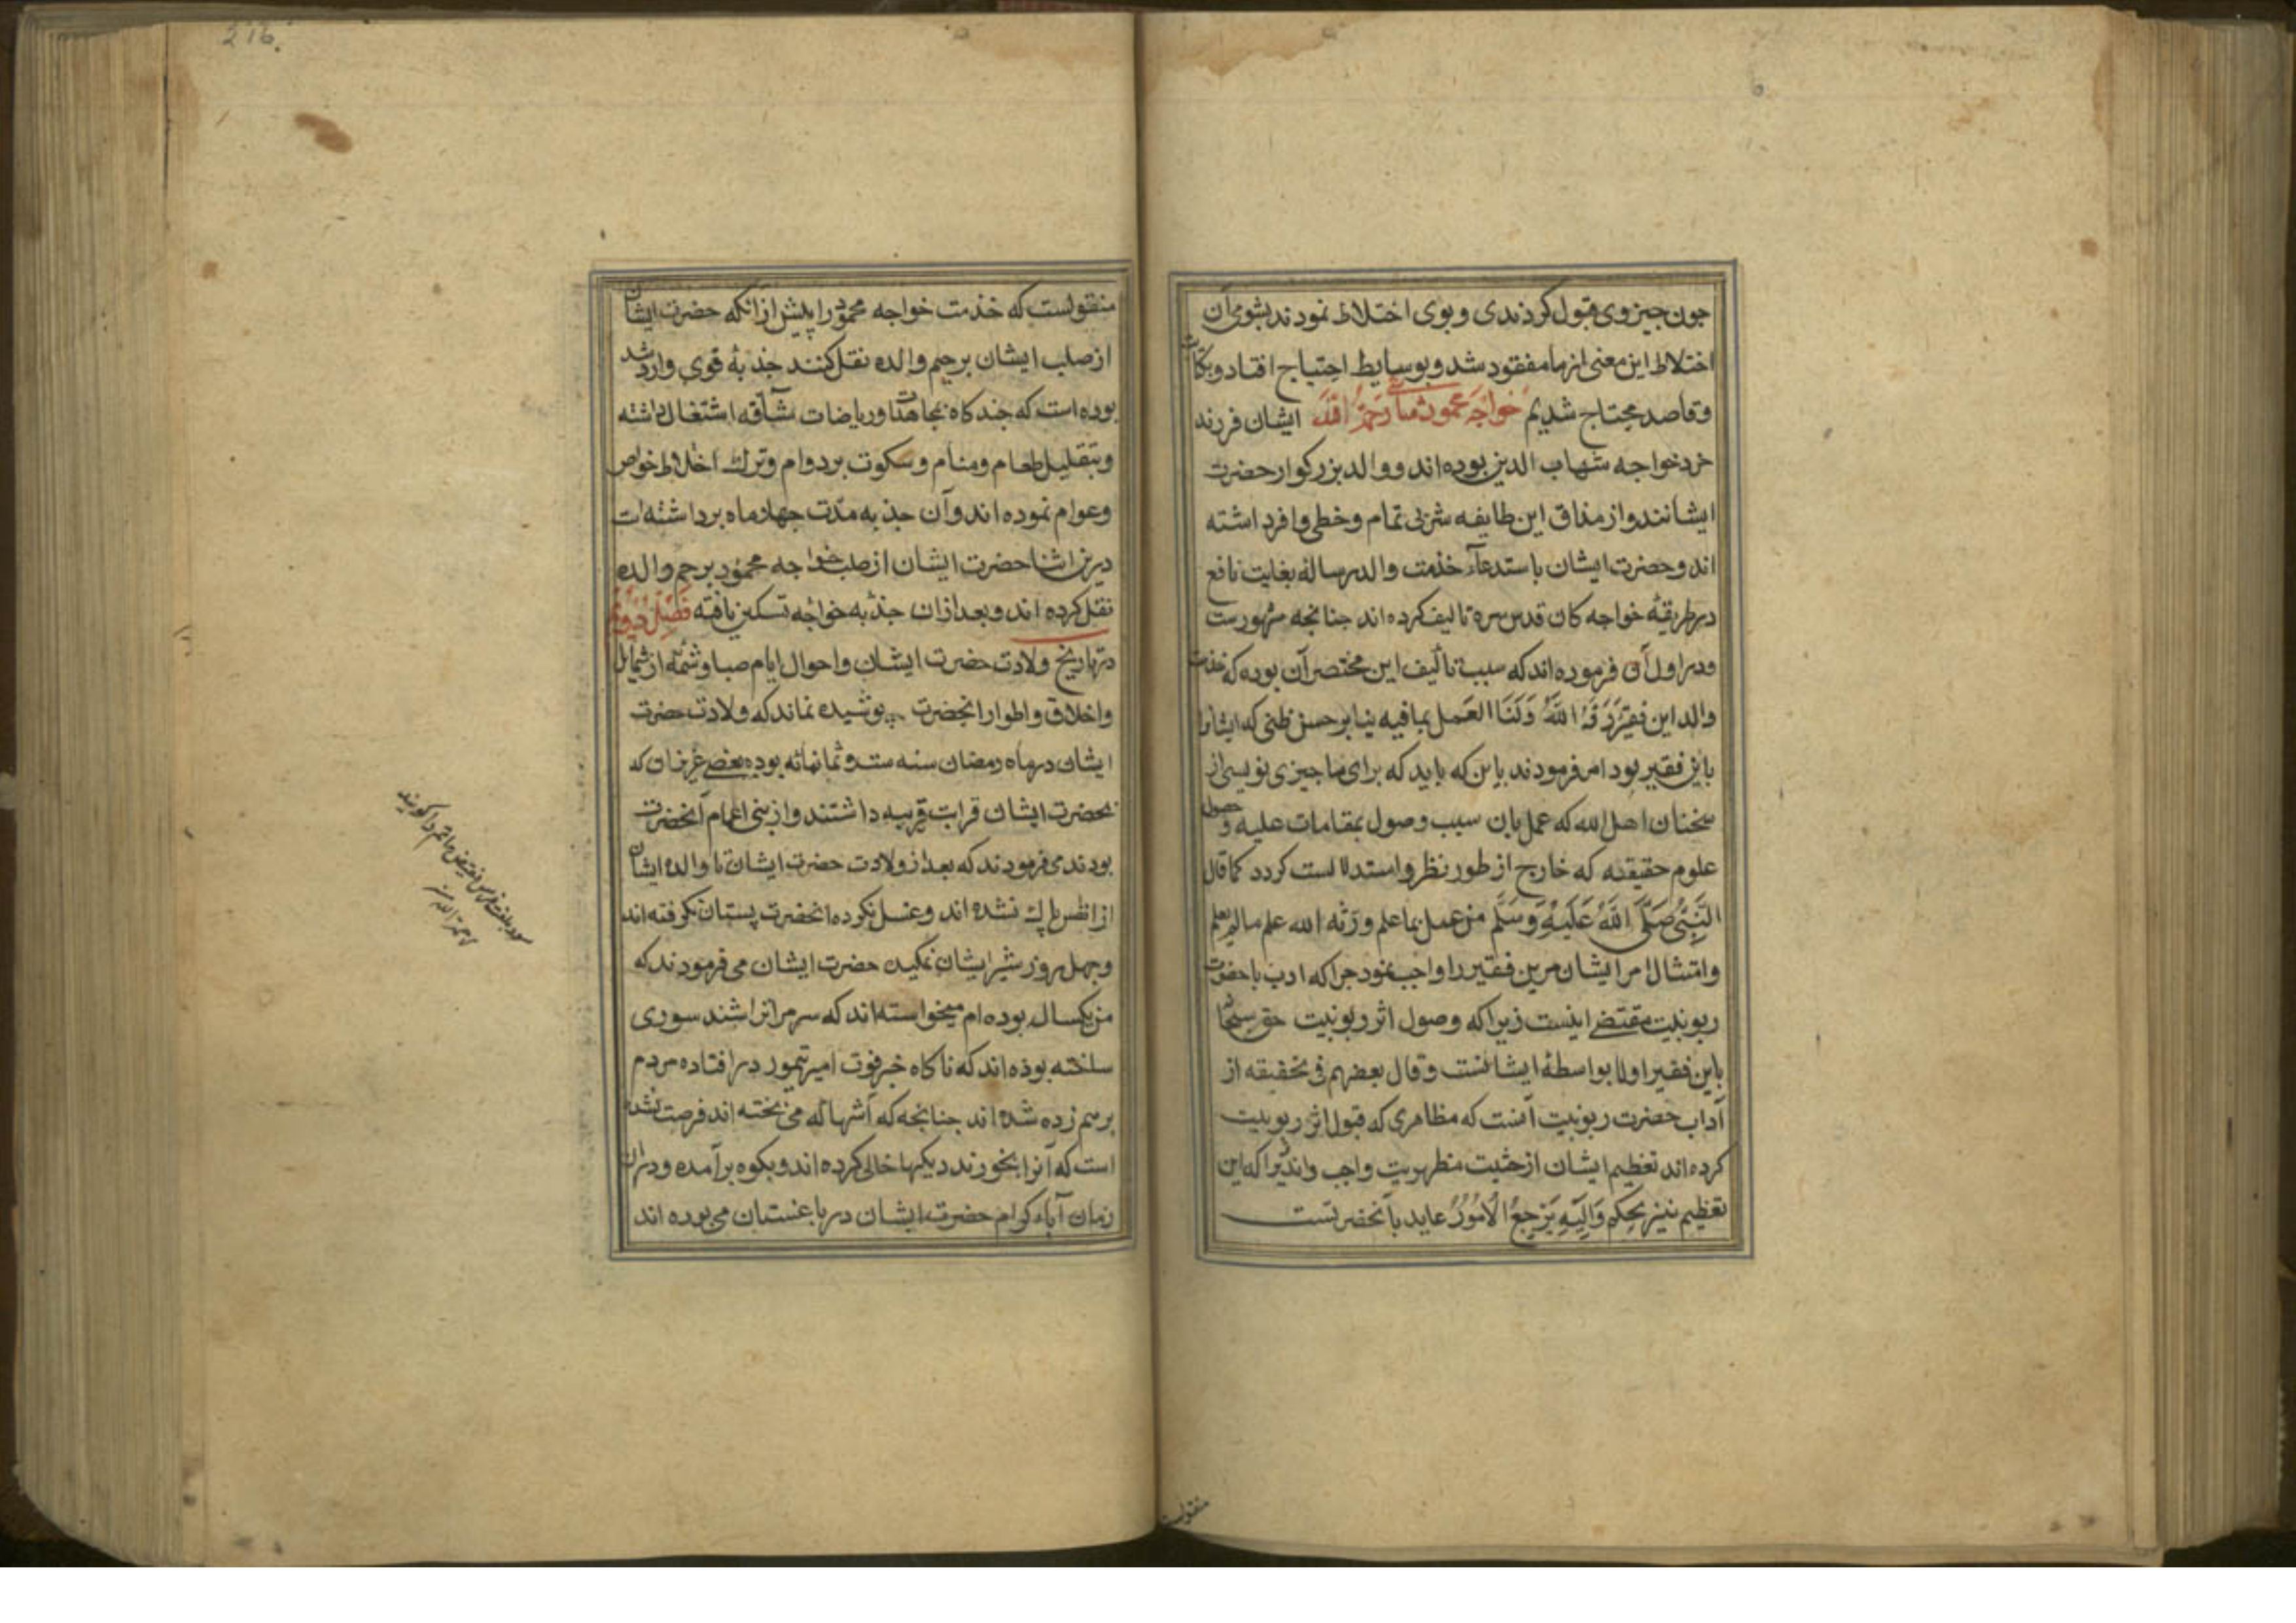 جون جیز وی قبول کردندی و بوی اختلاط نمودند بشومی آن
اختلاط این معنی از ما مفقود شد و بوسایط احتیاج افتاد و بکتابت
و قاصد محتاج شدیم خواجه محمود شاشی رحمه الله ایشان فرزند
خرد خواجه شهاب الدین بوده اند و والد بزرکوار حضرت
ایشانند و از مذاق این طایفه شربی تمام و حظی وافر داشته
اند و حضرت ایشان باستدعاء خدمت والد رساله بغایت نافع
در طریقهٔ خواجه کان قدس سره تالیف کرده اند جنانجه مشهورست
و در اول آن فرموده اند که سبب تألیف این مختصر آن بوده که خدمت
والد این فقیر رزقه الله وکنا العمل بما فیه بنا بر حسن ظنی که ایشانرا
باین فقیر بود امر فرمودند باین که باید که برای ما جیزی نویسی از
سخنان اهل الله که عمل بان سبب وصول بمقامات علیه و حصول
علوم حقیقیه که خارج از طور نظر و استدلالست کردد کما قال
النبی صلی الله علیه وسلم من عمل بما علم ورثه الله علم ما لم یعلم
و امتثال امر ایشان مرین فقیر را واجب نمود جرا که ادب با حضرت
ربوبیت مقتضی اینست زیرا که وصول اثر ربوبیت حق سبحانه
باین فقیر اولا بواسطهٔ ایشانست و قال بعضهم فی تحقیقه از
آداب حضرت ربوبیت آنست که مظاهری که قبول اثر ربوبیت
کرده اند تعظیم ایشان از حثیت مظهریت واجب دانند زیرا که این
تعظیم نیز بحکم والیه یرجع الامور عاید بآنحضرتست
منقولست
216.
منقولست که خدمت خواجه محمود را پیش از آنکه حضرت ایشان
از صلب ایشان برحم والده نقل کنند جذبهٔ قوی وارد شد
بوده است که جند کاه بمجاهدات و ریاضات شآقه اشتغال داشته
و بتقلیل طعام و منام و سکوت بر دوام و ترک اختلاط خواص
و عوام نموده اند و آن جذبه مدت جهار ماه برداشته است
درین اثنا حضرت ایشان از صلب خواجه محمود برحم والده
نقل کرده اند و بعد ازان جذبه خواجه تسکین یافته فصل دوم
در تاریخ ولادت حضرت ایشان و احوال ایام صبا و شمهٔ از شمایل
و اخلاق و اطوار انحضرت پوشیده نماند که ولادت حضرت
ایشان در ماه رمضان سنه ست و ثمانمائه بوده بعضی عزیزان که
بحضرت ایشان قرابت قریبه داشتند و از بنی اعمام آنحضرت
بودند می فرمودند که بعد از ولادت حضرت ایشان تا والده ایشان
از نفاس پاک نشده اند و غسل نکرده انحضرت پستان نکرفته اند
و جهل روز شیر ایشان نمکیده حضرت ایشان می فرمودند که
من یکسال بوده ام میخواسته اند که سر مرا تراشند سوری
ساخته بوده اند که ناکاه خبر فوت امیر تیمور در افتاده مردم
برهم زده شده اند جنانجه که آشها که می پخته اند فرصت نشده
است که آنرا بخورند دیکها خالی کرده اند و بکوه برآمده و دران
زمان آباء کرام حضرت ایشان در باغستان می بوده اند